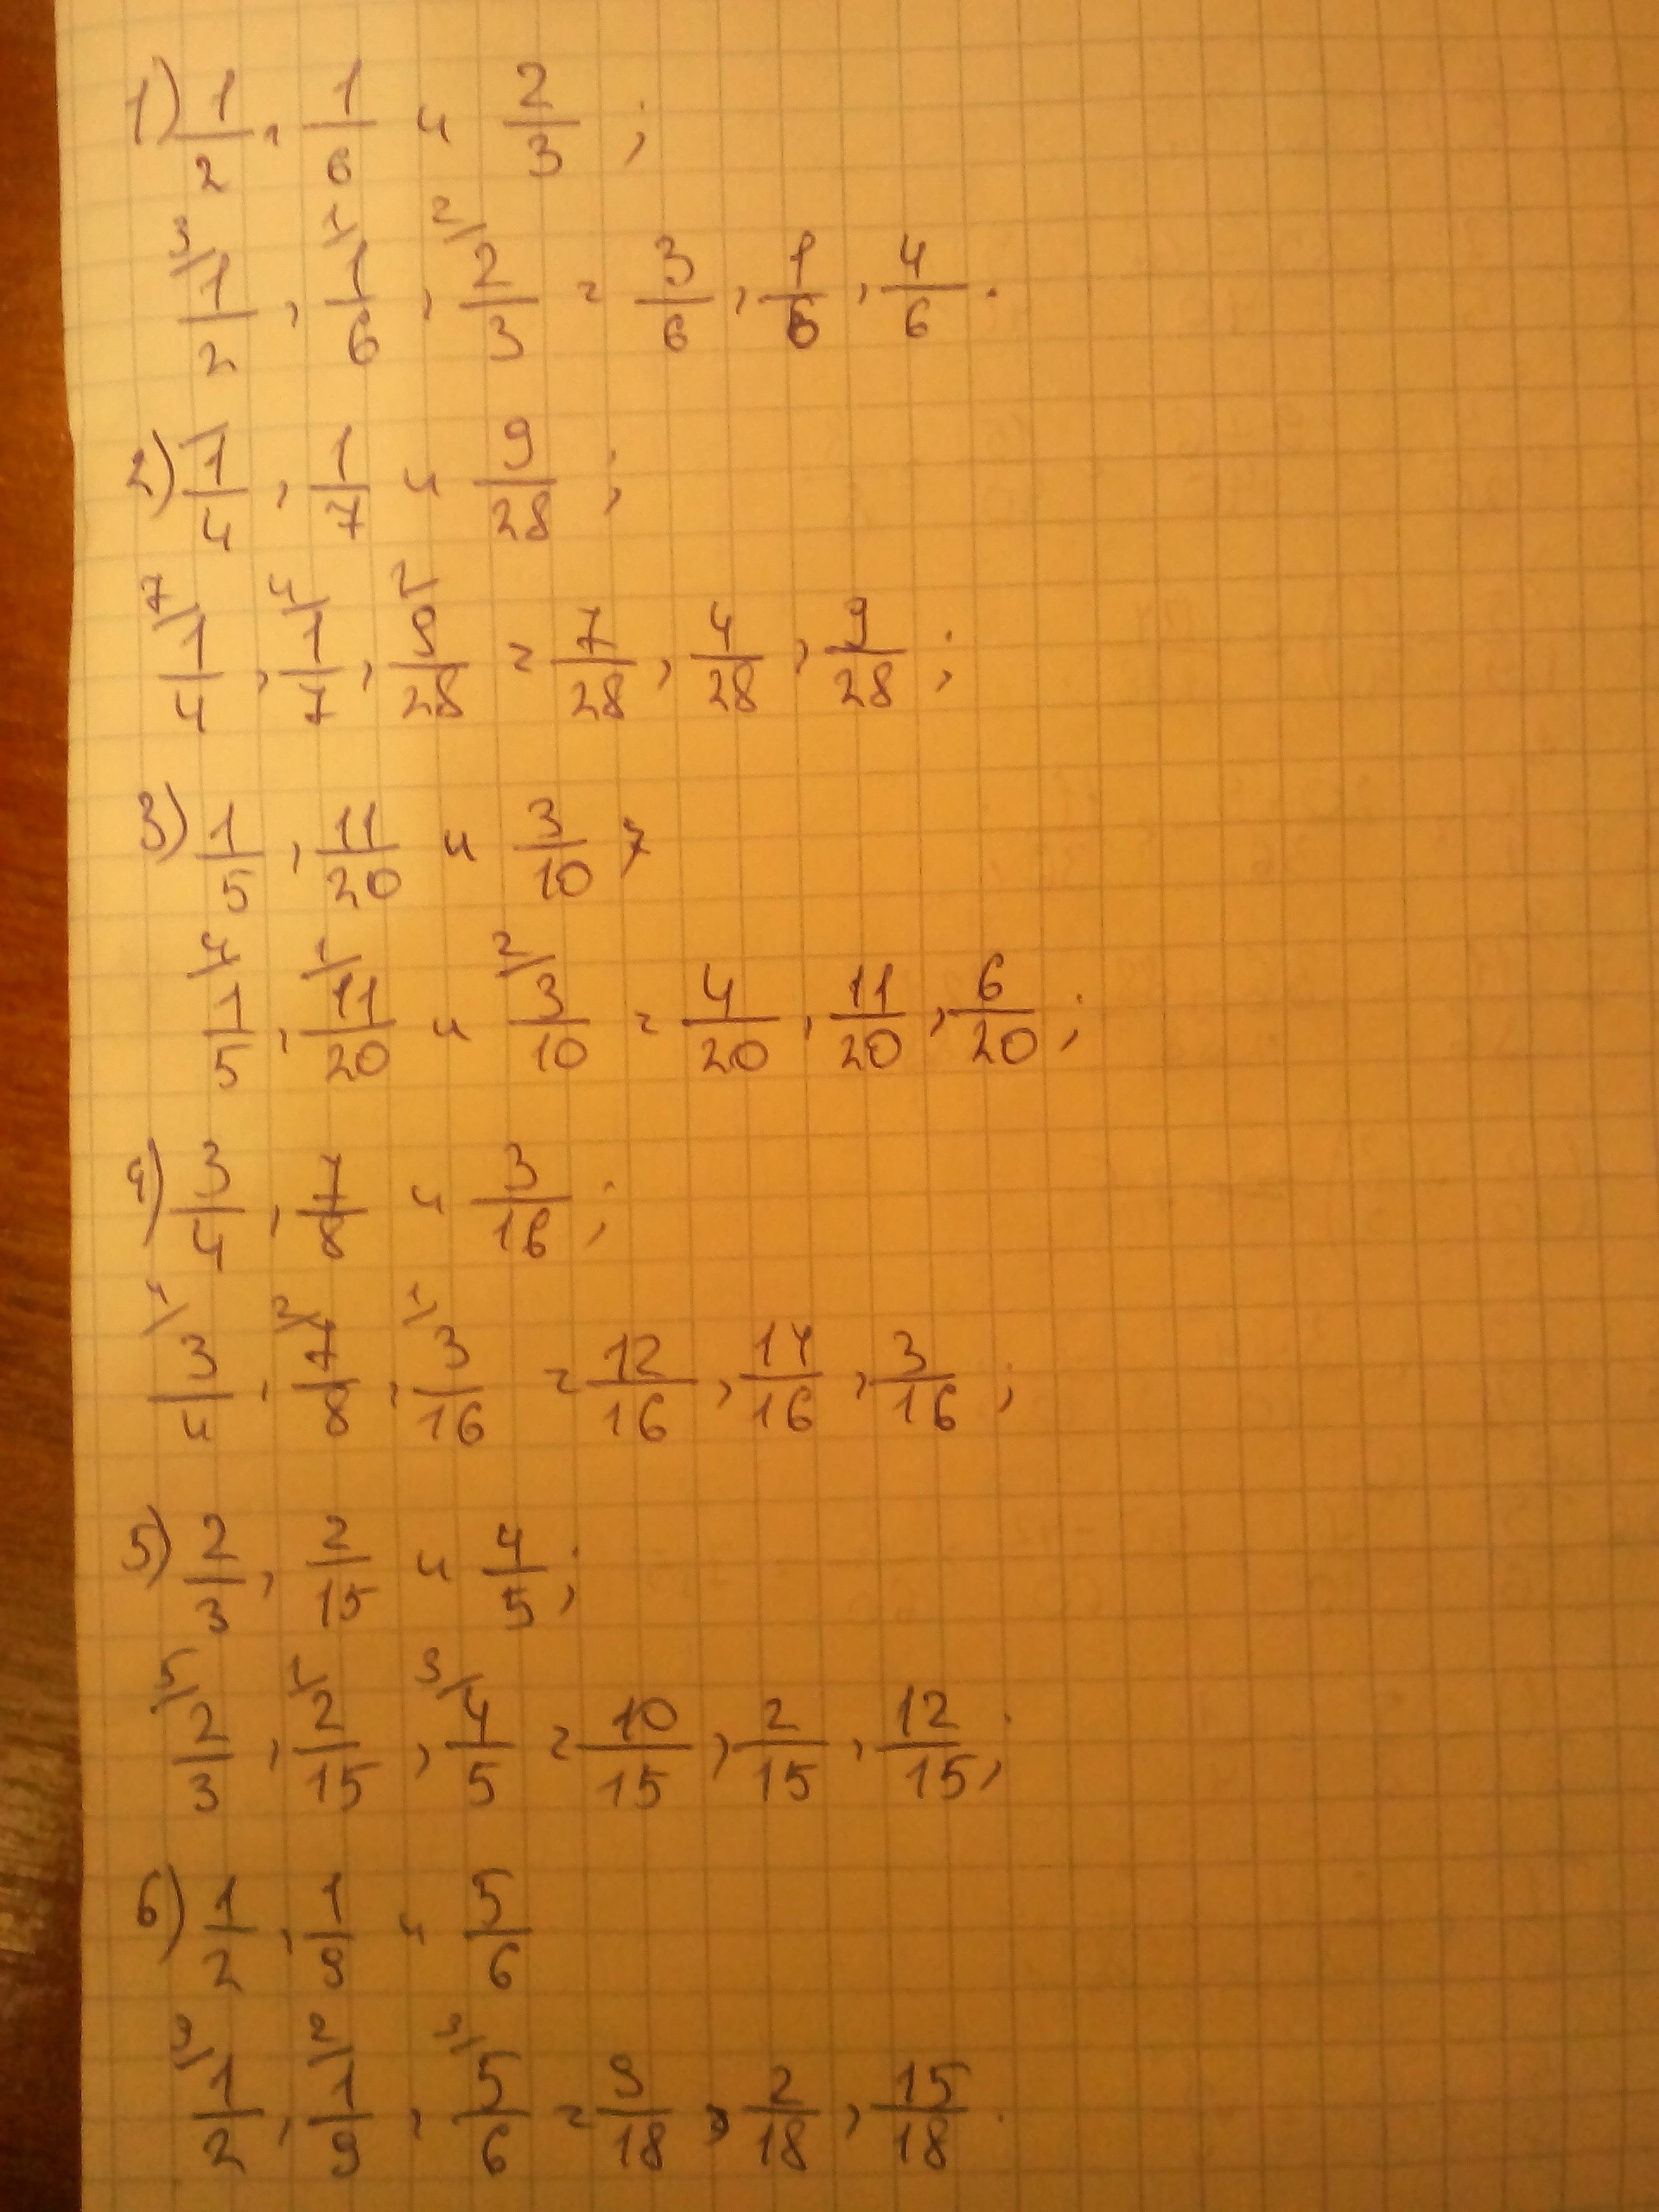 1) 1/2, 1/6 и 2/3;
3/ 1/2, 1/ 1/6, 2/ 2/3 = 3/6, 1/6, 4/6.
2) 1/4, 1/7 и 9/28;
7/ 1/4, 4/ 1/7, 1/ 9/28 = 7/28, 4/28, 9/28;
3) 1/5, 11/20 и 3/10;
4/ 1/5, 1/ 11/20 и 2/ 3/10 = 4/20, 11/20, 6/20;
4) 3/4, 7/8 и 3/16;
4/ 3/4, 2/ 7/8, 1/ 3/16 = 12/16, 14/16, 3/16;
5) 2/3, 2/15 и 4/5;
5/ 2/3, 1/ 2/15, 3/ 4/5 = 10/15, 2/15, 12/15;
6) 1/2, 1/9 и 5/6
9/ 1/2, 2/ 1/9, 3/ 5/6 = 9/18, 2/18, 15/18.